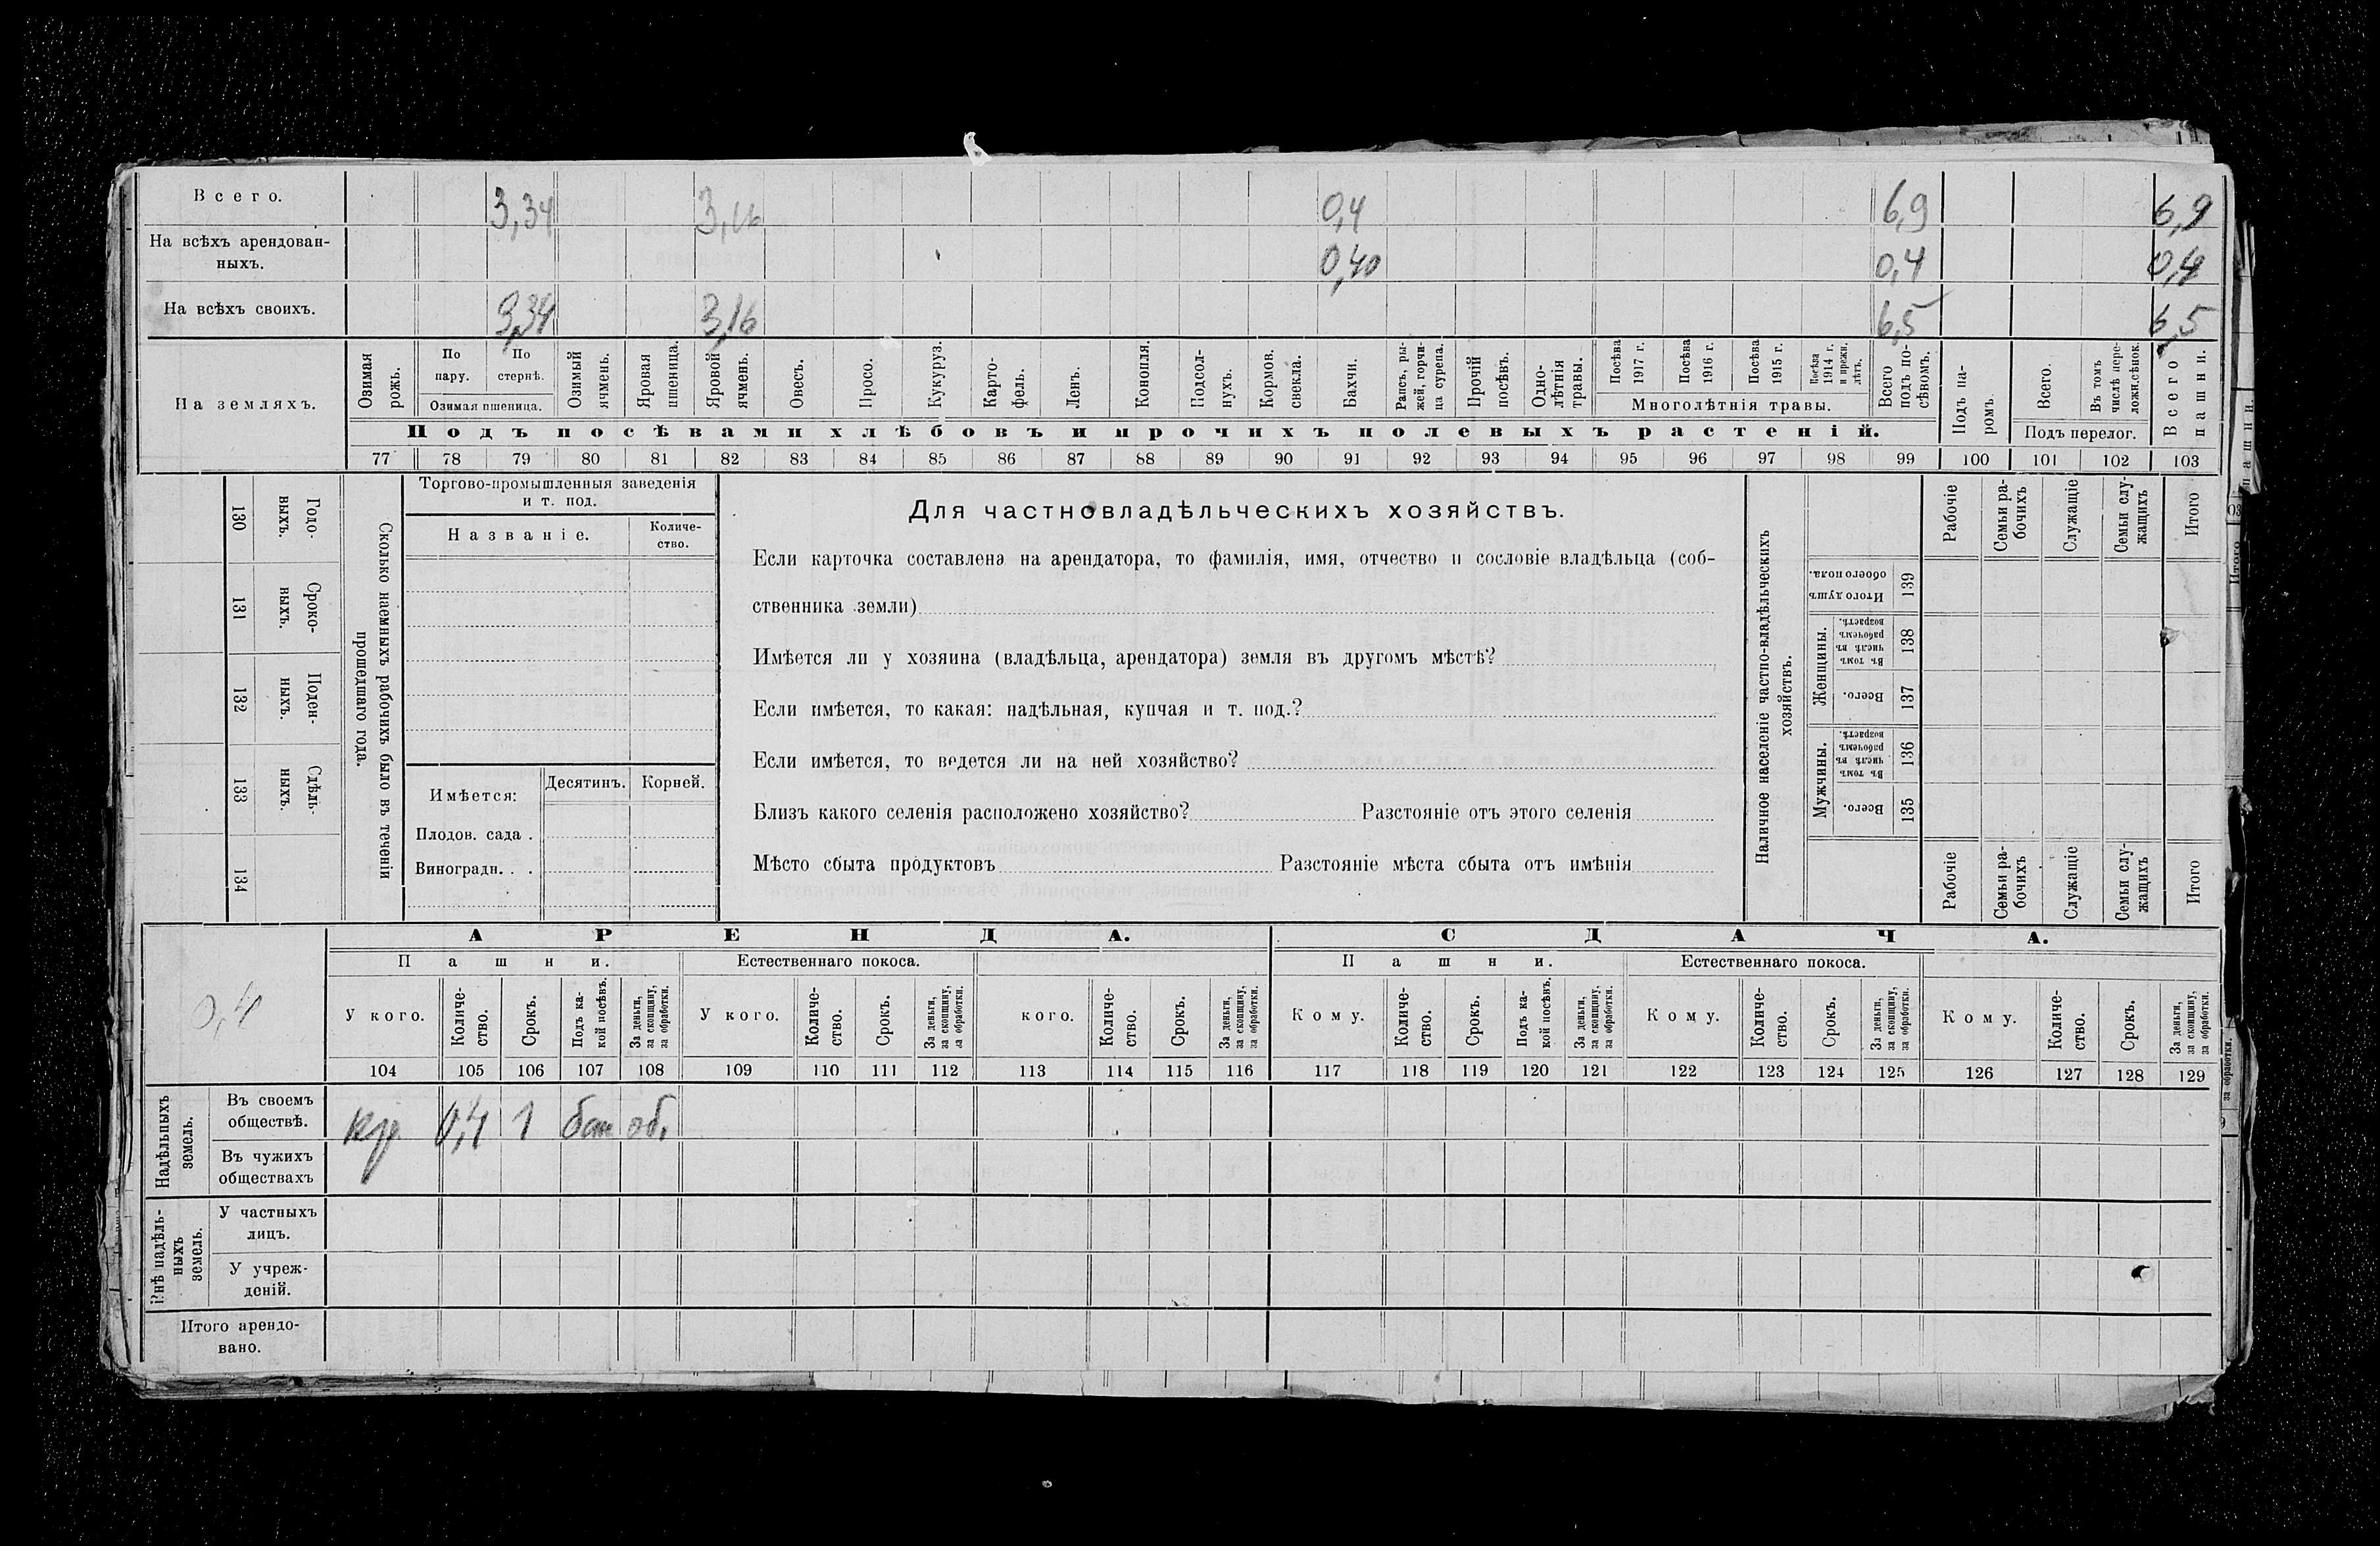 Всего. 3,34 3,16 0,4 6,9 6,9
На всѣхъ арендован-
ныхъ. 0,40 0,4 0,4
На всѣхъ своихъ. 3,34 3,16 6,5 6,5
На земляхъ.
Озимая
рожь.
По
пару.
По
стернѣ.
Озимая пшеница.
Озимый
ячмень.
Яровая
пшеница.
Яровой
ячмень.
Овесъ.
Просо.
Кукуруз.
Карто-
фель.
Ленъ.
Конопля.
Подсол-
нухъ.
Кормов.
свекла.
Бахчи.
Рапсъ, ры-
жей, горчи-
ца сурепа.
Прочій
посѣвъ.
Одно-
лѣтнія
травы.
Посѣва
1917 г.
Посѣва
1916 г.
Посѣва
1915 г.
Посѣва
1914 г.
и прежн.
лѣтъ.
Многолѣтнія травы.
Всего
подъ по-
сѣвомъ.
Подъ па-
ромъ.
Всего.
Въ томъ
числѣ пере-
ложн.сѣнок.
Подъ перелог.
Всего
пашни.
Подъ посѣвами хлѣбовъ и прочихъ полевыхъ растеній.
77 78 79 80 81 82 83 84 85 86 87 88 89 90 91 92 93 94 95 96 97 98 99 100 101 102 103
Годо-
выхъ.
130
Сроко-
ныхъ.
131
Поден-
ныхъ.
132
Сдѣль-
ныхъ.
133
134
Сколько наемныхъ рабочихъ было въ теченіи
прошедшаго года.
Торгово-промышленныя заведенія
и т. под.
Названіе.
Количе-
ство.
Имѣется:
Десятинъ.
Корней.
Плодов. сада .
Виноградн. . .
Для частновладѣльческихъ хозяйствъ.
Если карточка составлена на арендатора, то фамилія, имя, отчество и сословіе владѣльца (соб-
ственника земли)
Имѣется ли у хозяина (владѣльца, арендатора) земля въ другомъ мѣстѣ?
Если имѣется, то какая: надѣльная, купчая и т. под.?
Если имѣется, то ведется ли на ней хозяйство?
Близъ какого селенія расположено хозяйство? Разстояніе отъ этого селенія
Мѣсто сбыта продуктовъ Разстояніе мѣста сбыта отъ имѣнія
Наличное населеніе частно-владѣльческихъ
хозяйствъ.
Рабочіе
Семьи ра-
бочихъ
Служащіе
Семьи слу-
жащихъ
Итого
Итого душъ
обоего пола.
139
Женщины.
Въ томъ
числѣ въ
рабочемъ
возрастѣ.
138
Всего.
137
Мужчины.
Въ томъ
числѣ въ
рабочемъ
возрастѣ.
136
Всего.
135
Рабочіе
Семьи ра-
бочихъ
Служащіе
Семьи слу-
жащихъ
Итого
АРЕНДА. СДАЧА.
Пашни. Естественнаго покоса. Пашни. Естественнаго покоса.
0,4
У кого.
Количе-
ство.
Срокъ.
Подъ ка-
кой посѣвъ.
За деньги,
за скопщину,
за обработки.
У кого.
Количе-
ство.
Срокъ.
За деньги,
за скопщину,
за обработки.
кого.
Количе-
ство.
Срокъ.
За деньги,
за скопщину,
за обработки.
Кому.
Количе-
ство.
Срокъ.
Подъ ка-
кой посѣвъ.
За деньги,
за скопщину,
за обработки.
Кому.
Количе-
ство.
Срокъ.
За деньги,
за скопщину,
за обработки.
Кому.
Количе-
ство.
Срокъ.
За деньги,
за скопщину,
за обработки.
104 105 106 107 108 109 110 111 112 113 114 115 116 117 118 119 120 121 122 123 124 125 126 127 128 129
Надѣльныхъ
земель.
Въ своемъ
обществѣ.
0,4 1 бах об.
Въ чужихъ
обществахъ
Внѣ надѣль-
ныхъ
земель.
У частныхъ
лицъ.
У учреж-
деній.
Итого арендо-
вано.